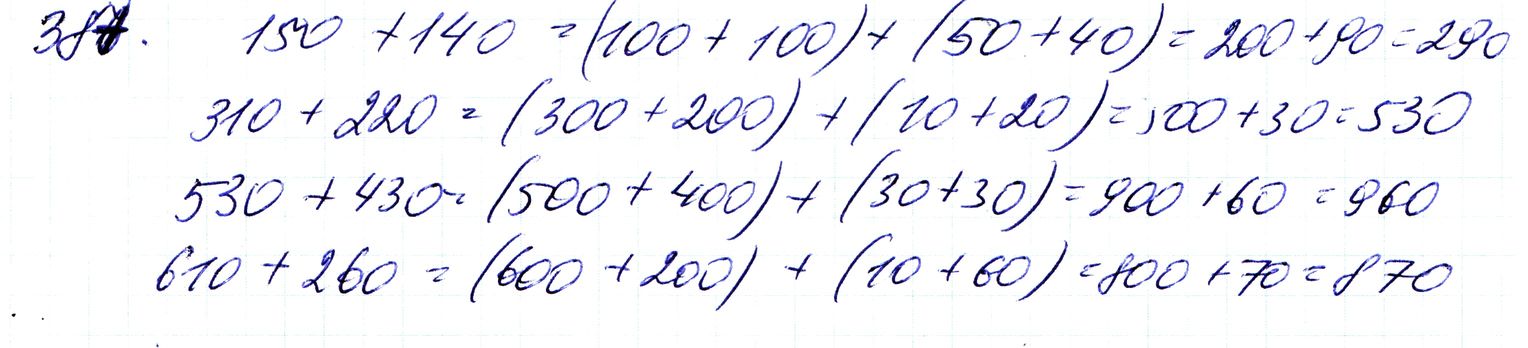 387. 150 + 140 = (100 + 100) + (50 + 40) = 200 + 90 = 290
310 + 220 = (300 + 200) + (10 + 20) = 500 + 30 = 530
530 + 430 = (500 + 400) + (30 + 30) = 900 + 60 = 960
610 + 260 = (600 + 200) + (10 + 60) = 800 + 70 = 870